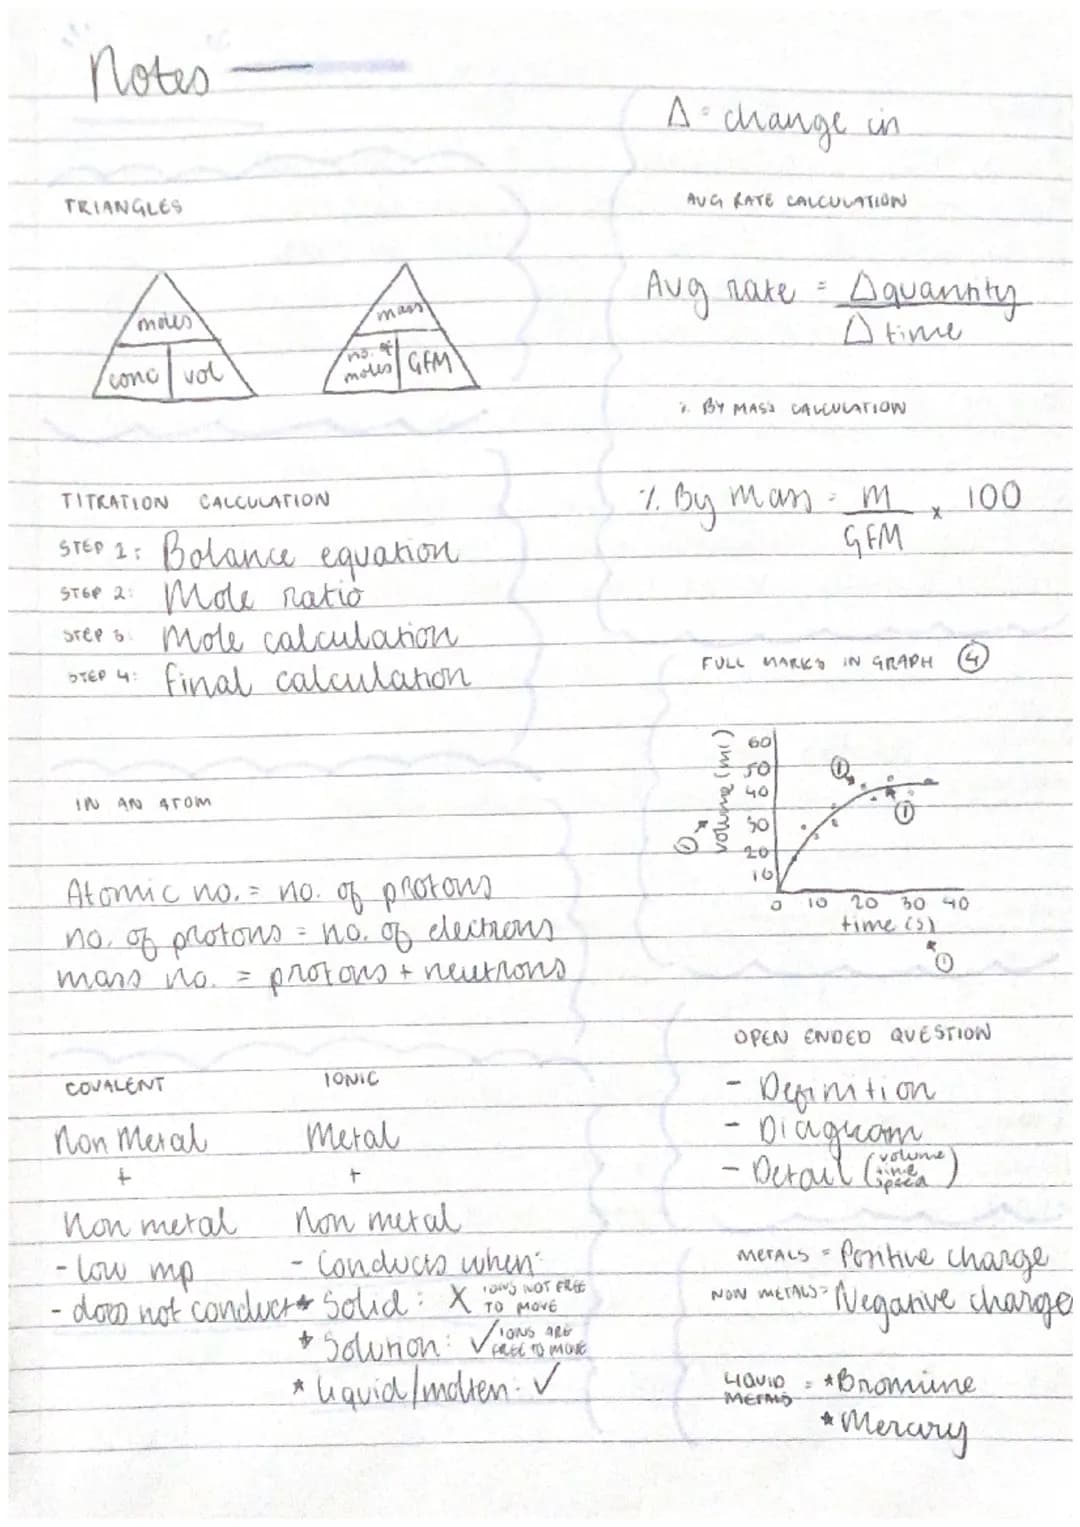 Notes
Δ = change in
TRIANGLES
moles
conc vol
mass
no. of moles GFM
AVG RATE CALCULATION
Avg rate = Δquantity
Δ time
% BY MASS CALCULATION
% By Mass = m × 100
GFM
TITRATION CALCULATION
STEP 1: Balance equation
STEP 2: Mole ratio
STEP 3: Mole calculation
STEP 4: final calculation
FULL MARKS IN GRAPH ④
volume (ml)
60
50
40
30
20
10
0 10 20 30 40
time (s)
①
①
①
①
IN AN ATOM
Atomic no. = no. of protons
no. of protons = no. of electrons
mass no. = protons + neutrons
COVALENT
Non Metal
+
Non metal
- low mp
- does not conduct
IONIC
Metal
+
Non metal
- Conducts when:
* Solid: X IONS NOT FREE
TO MOVE
* Solution: ✓ IONS ARE
FREE TO MOVE
* liquid/molten: ✓
OPEN ENDED QUESTION
- Definition
- Diagram
- Detail (volume
time
speed)
METALS = Positive charge
NON METALS = Negative charge
LIQUID METALS = *Bromine
*Mercury